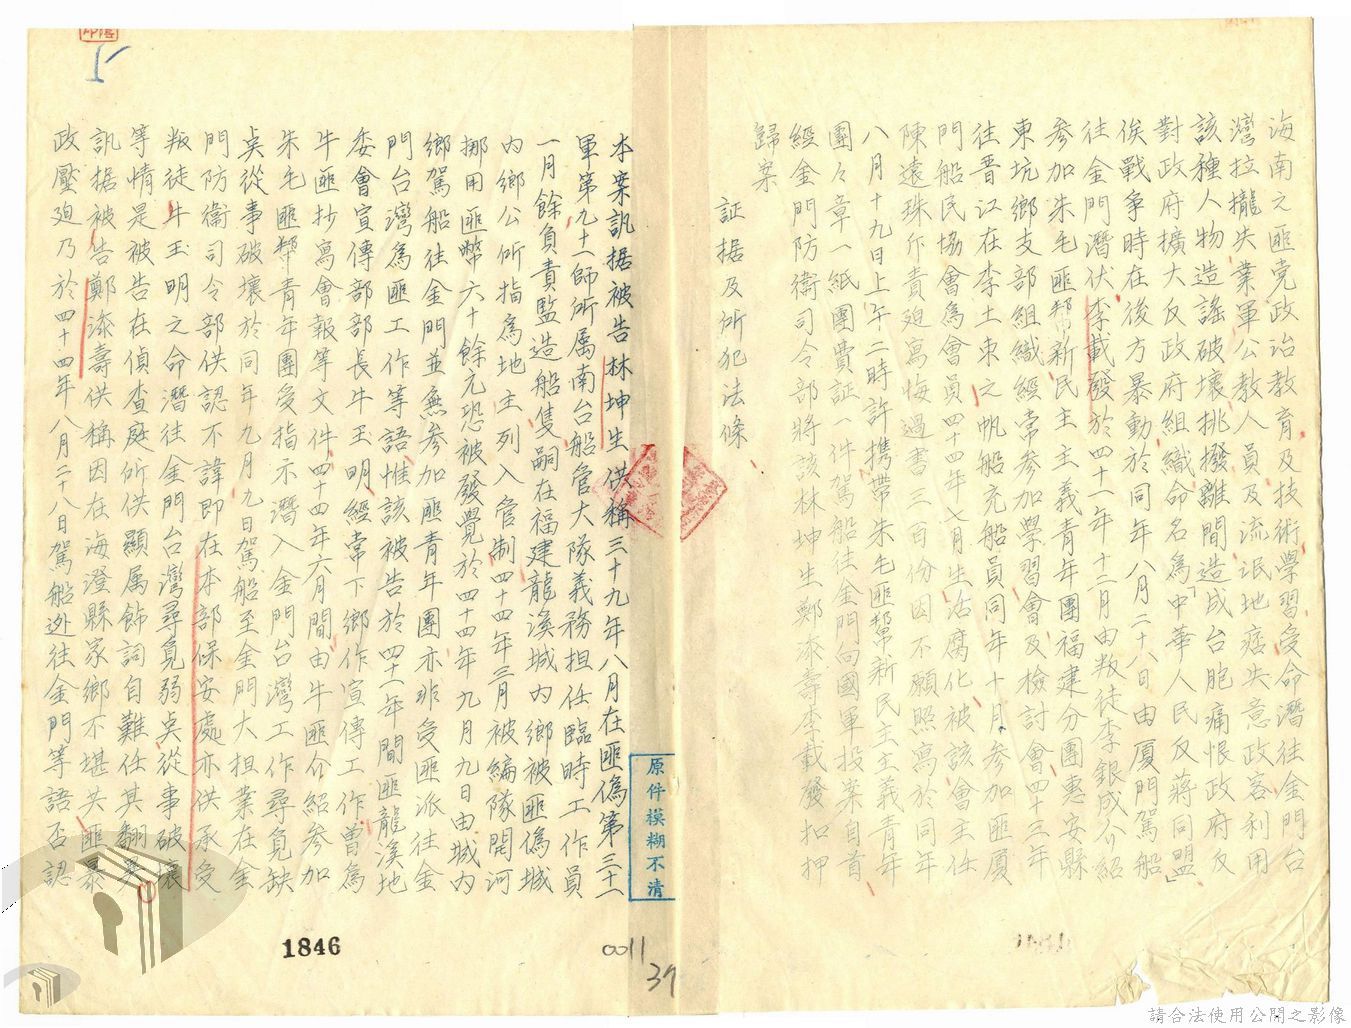 海南之匪党政治教育及技術學習受命潛往金門台
灣拉攏失業軍公教人員及流氓地痞失意政客利用
該種人物造謠破壞挑撥離間造成台胞痛恨政府反
對政府擴大反政府組織命名為「中華人民反蔣同盟」
俟戰爭時在後方暴動於同年八月二十八日由厦門駕船
往金門潛伏李載發於四十一年十二月由叛徒李銀成介紹
參加朱毛匪幫新民主主義青年團福建分團惠安縣
東坑鄉支部組織經常參加學習會及檢討會四十三年
往晋江在李土朿之帆船充船員同年十月參加匪厦
門船民協會為會員四十四年七月生活腐化被該會主任
陳遠珠斥責廹寫悔過書三百份因不願照寫於同年
八月十九日上午二時許携帶朱毛匪幫新民主主義青年
團々章一紙團費証一件駕船往金門向國軍投案自首
經金門防衛司令部將該林坤生鄭添壽李載發扣押
歸案
証据及所犯法條
本案訊据被告林坤生供稱三十九年八月在匪偽第三十一
軍第九十一師所属南台船管大隊義務担任臨時工作員
一月餘負責監造船隻嗣在福建龍溪城內鄉被匪偽城
內鄉公所指為地主列入管制四十四年三月被編隊開河
挪用匪幣六十餘元恐被發覺於四十四年九月九日由城內
鄉駕船往金門並無參加匪青年團亦非受匪派往金
門台灣為匪工作等語惟該被告於四十一年間匪龍溪地
委會宣傳部部長牛玉明經常下鄉作宣傳工作曾為
牛匪抄寫會報等文件四十四年六月間由牛匪介紹參加
朱毛匪幫青年團受指示潛入金門台灣工作尋覓缺
点從事破壞於同年九月九日駕船至金門大担業在金
門防衛司令部供認不諱即在本部保安處亦供承受
叛徒牛玉明之命潛往金門台灣尋覓弱点從事破壞
等情是被告在偵查庭所供顯属飾詞自難任其翻異
訊据被告鄭添壽供稱因在海澄縣家鄉不堪共匪暴
政壓廹乃於四十四年八月二十八日駕船逃往金門等語否認
原件模糊不清
1846
0011
37
請合法使用公開之影像